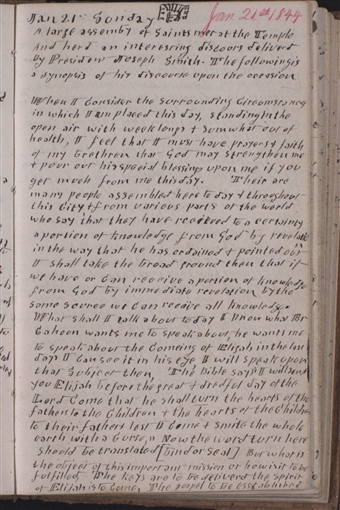 Jan 21st Sunday Jan. 21st 1844
A large assembly of Saints met at the Temple
And herd an interesting discours deliverd
By Presidnt Joseph Smith. The following is
a synopsis of his discourse upon the occasion
When I consider the Surrounding Circumstances
in which I am placed this day, standing in the
open air with weak lungs & somwhat out of
health, I feel that I must have prayers & faith
of my brethren that God may strengthen me
& pour out his special blessings upon me if you
get much from me this day. Their are
many people assembled here to day & throughout
this City & from various parts of the world
who say that they have received to a certainty
a portion of knowledge from God by revelation
in the way that he has ordained & pointed out
I shall take the broad ground then that if
we have or Can receive a portion of knowledge
from God by immediate revelation by the
same source we Can receive all knowledge
What shall I talk about to day I know what Br
Cahoon wants me to speak about, he wants me
to speak about the Comeing of Elijah in the last
days I Can see it in his eye I will speak upon
that Subject then. The Bible says "I will send
you Elijah before the great & dredful day of the
Lord Come that he shall turn the hearts of the
fathers to the Children & the hearts of the Children
to their fathers lest I Come & smite the whole
earth with a Curse," Now the word turn here
should be translated [bind or seal] But what is
the object of this important mission or how is it to be
fulfilled, The keys are to be deliverd the spirit
of Elijah is to Come, The gospel to be esstablished